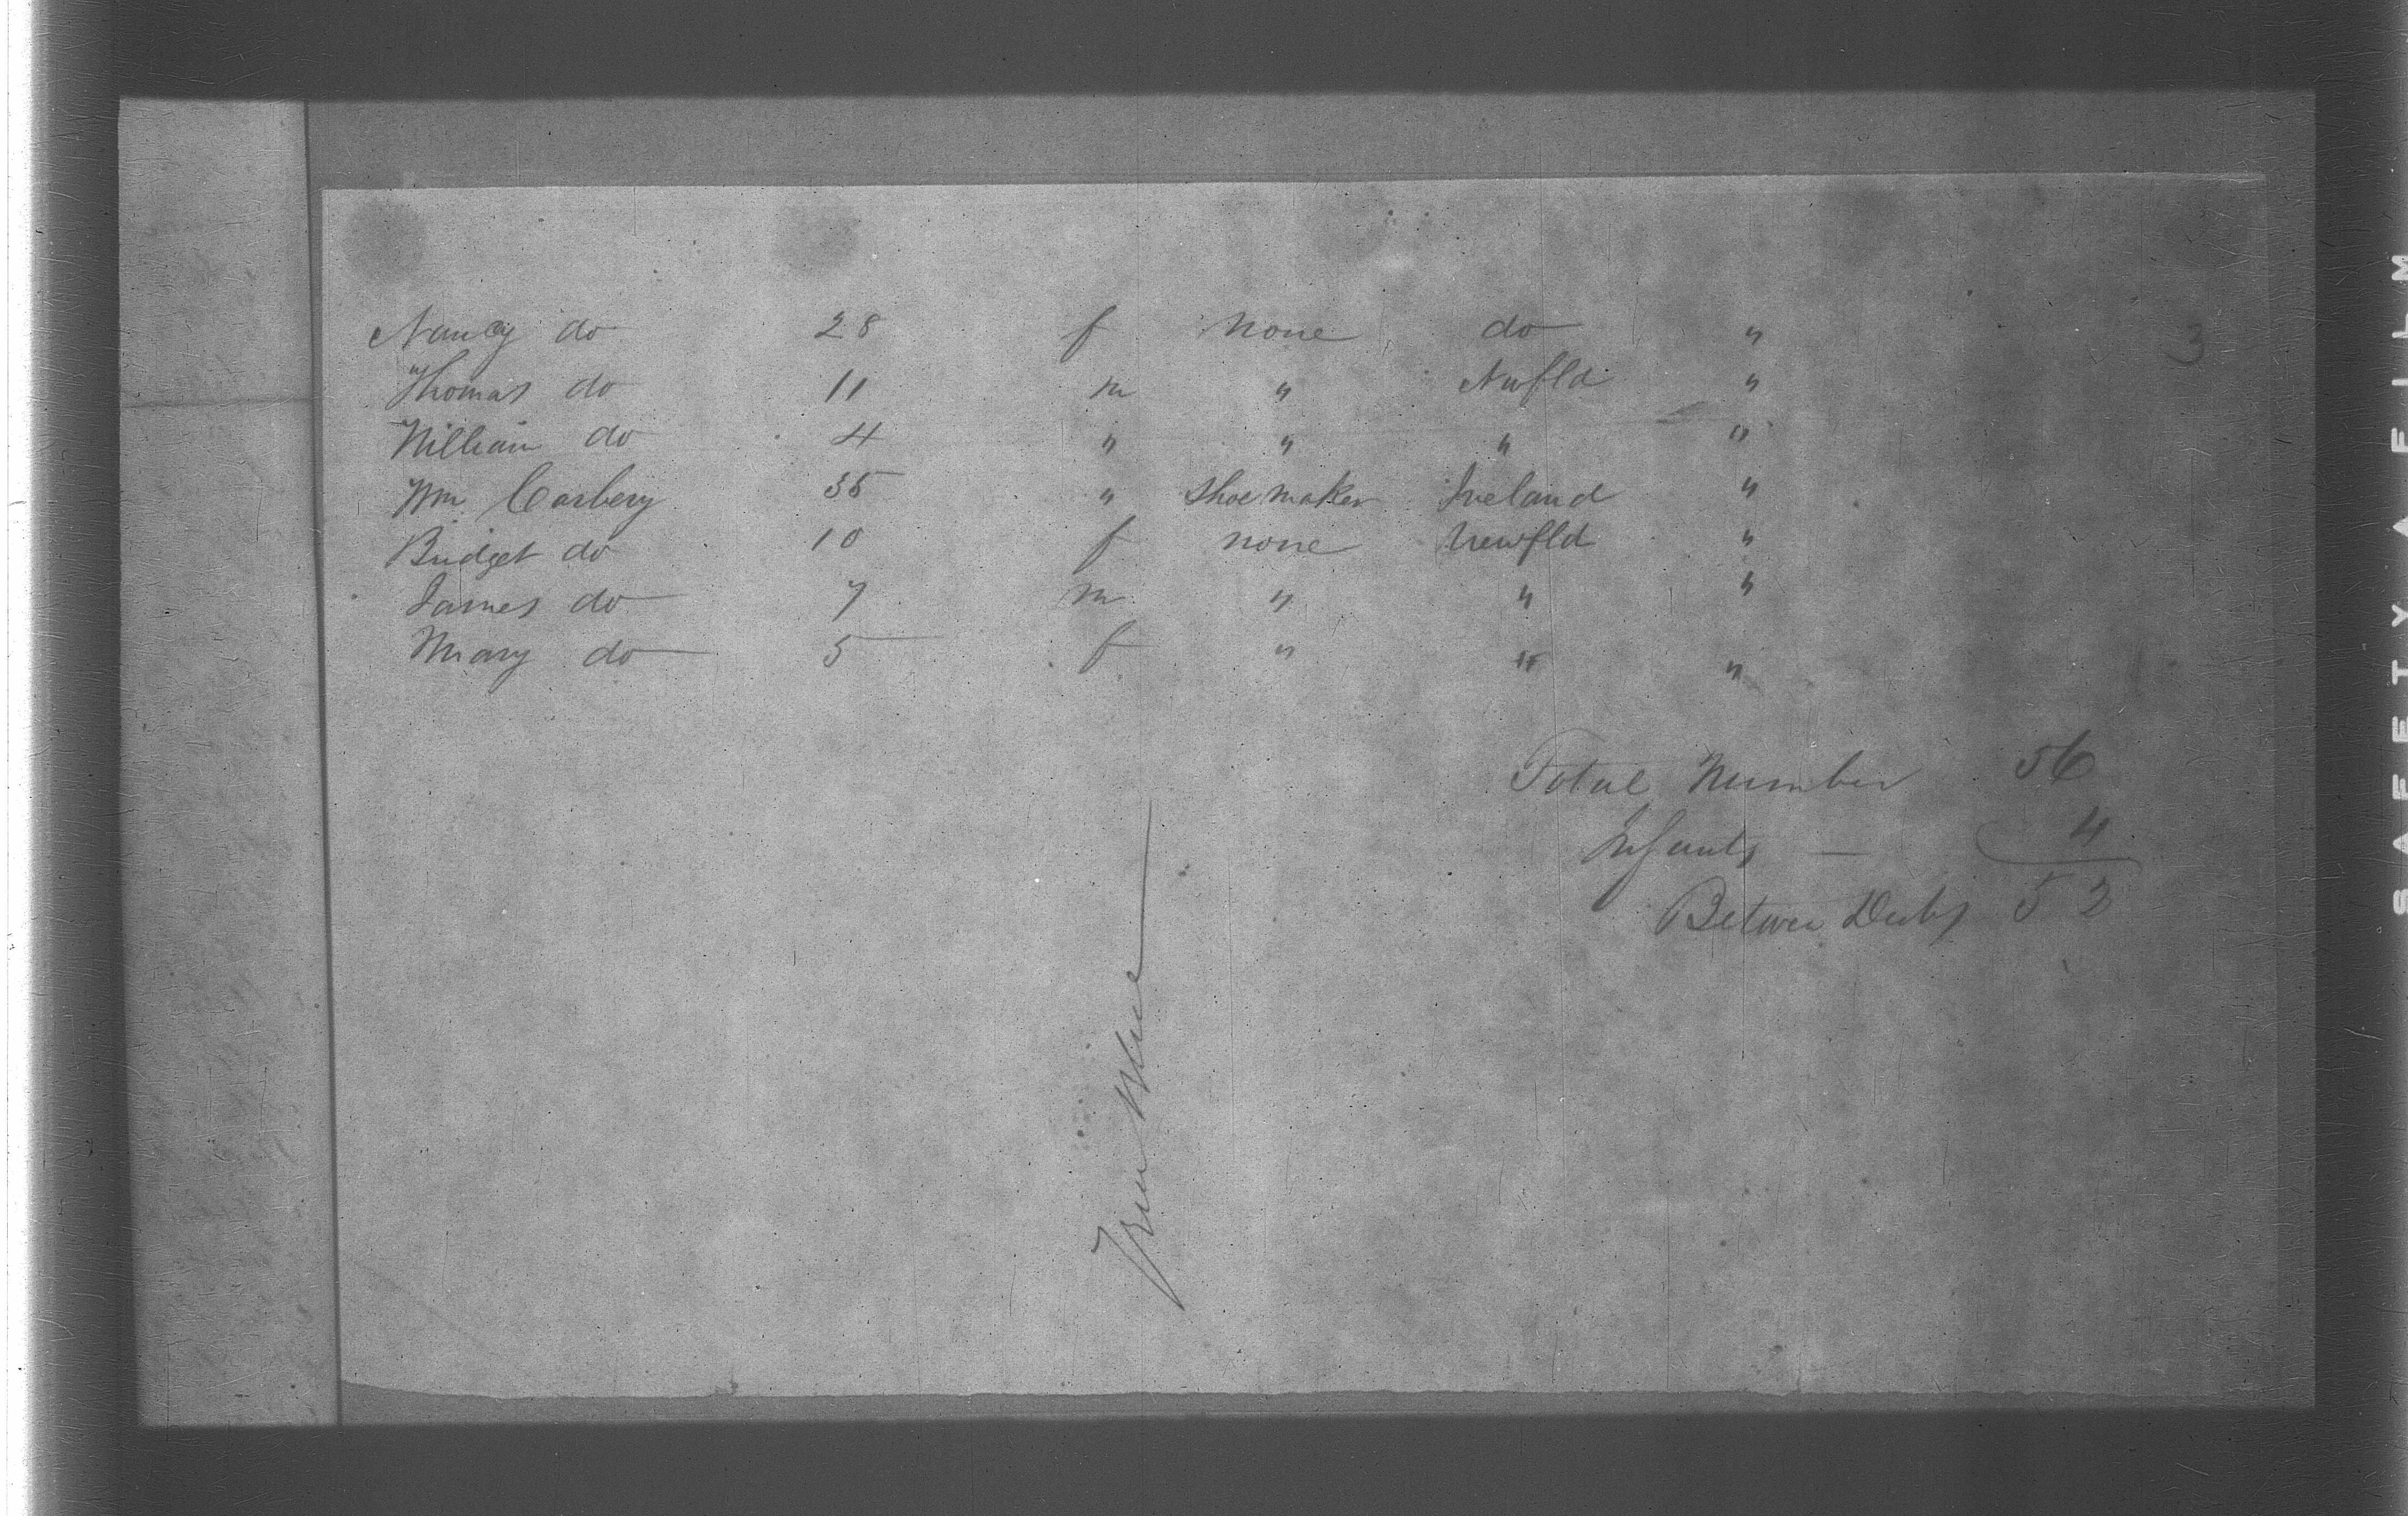 Nancy do 28 f none do "
Thomas do 11 m " Nwfld "
William do 4 " " " "
Wm Carbery 35 " Shoe maker Ireland "
Bridget do 10 f none Newfld "
James do 7 m " " "
Mary do 5 f " " "
3
Total Number 56
Infants — 4
Between Decks 52
SAFETY FILM